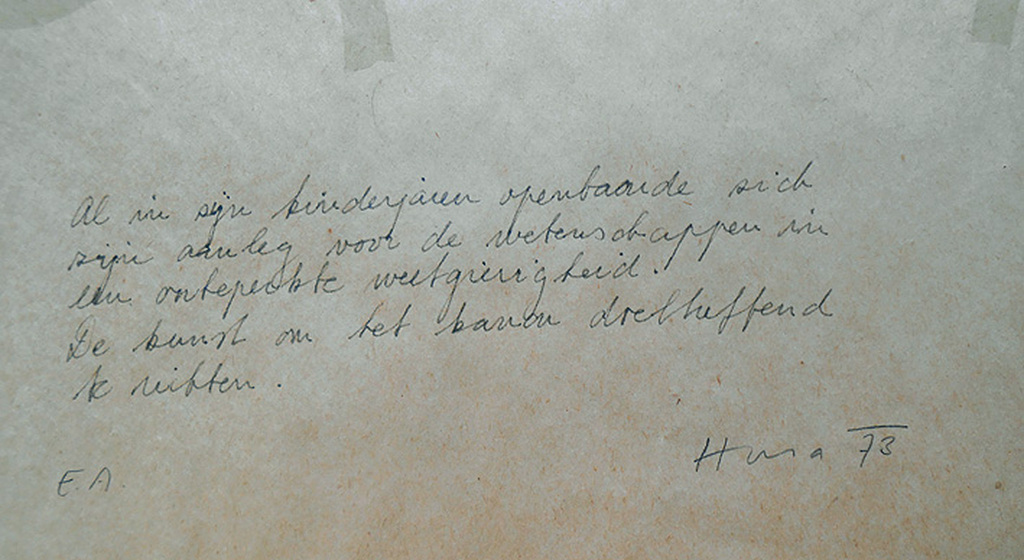 Al in zijn kinderjaren openbaarde zich
zijn aanleg voor de wetenschappen in
een onbeperkte weetgierigheid.
De kunst om het kanon doeltreffend
te richten.
E.A. 73